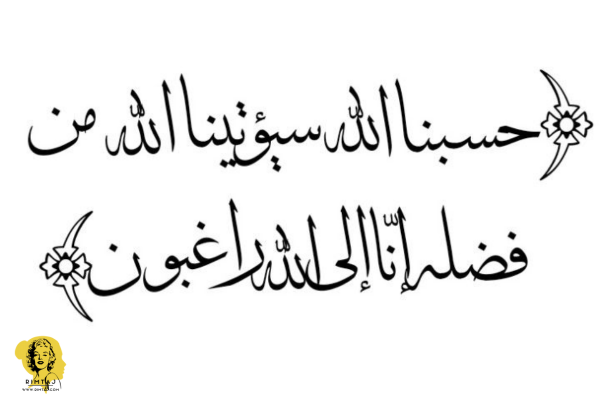 ﴿حسبنا الله سيؤتينا الله من
فضله إنّا إلى الله راغبون﴾
RIMTAJ
WWW.RIMTAJ.COM